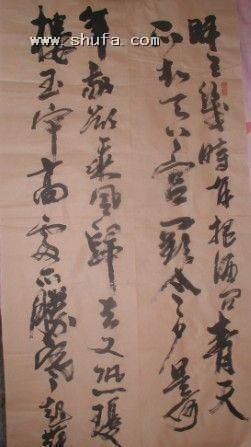 www.shufa.com
明月幾時有把酒問青天
不知天上宮闕今夕是何
年我欲乘風歸去又恐瓊
樓玉宇高處不勝寒起舞